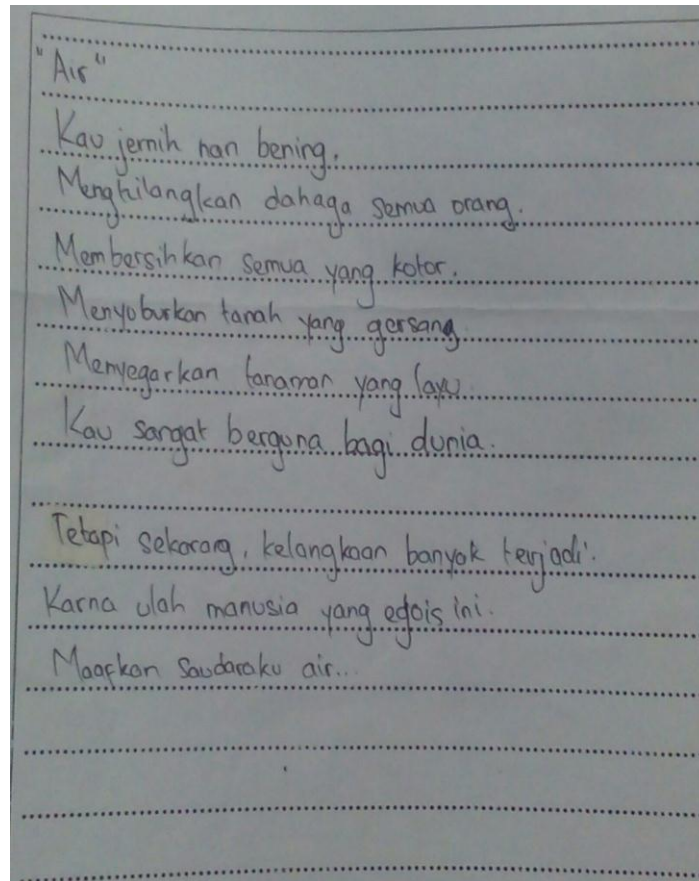 "Air"
Kau jernih nan bening.
Menghilangkan dahaga semua orang.
Membersihkan semua yang kotor.
Menyuburkan tanah yang gersang
Menyegarkan tanaman yang layu.
Kau sangat berguna bagi dunia.
Tetapi sekarang, kelangkaan banyak terjadi.
Karna ulah manusia yang egois ini.
Maafkan Saudaraku air...